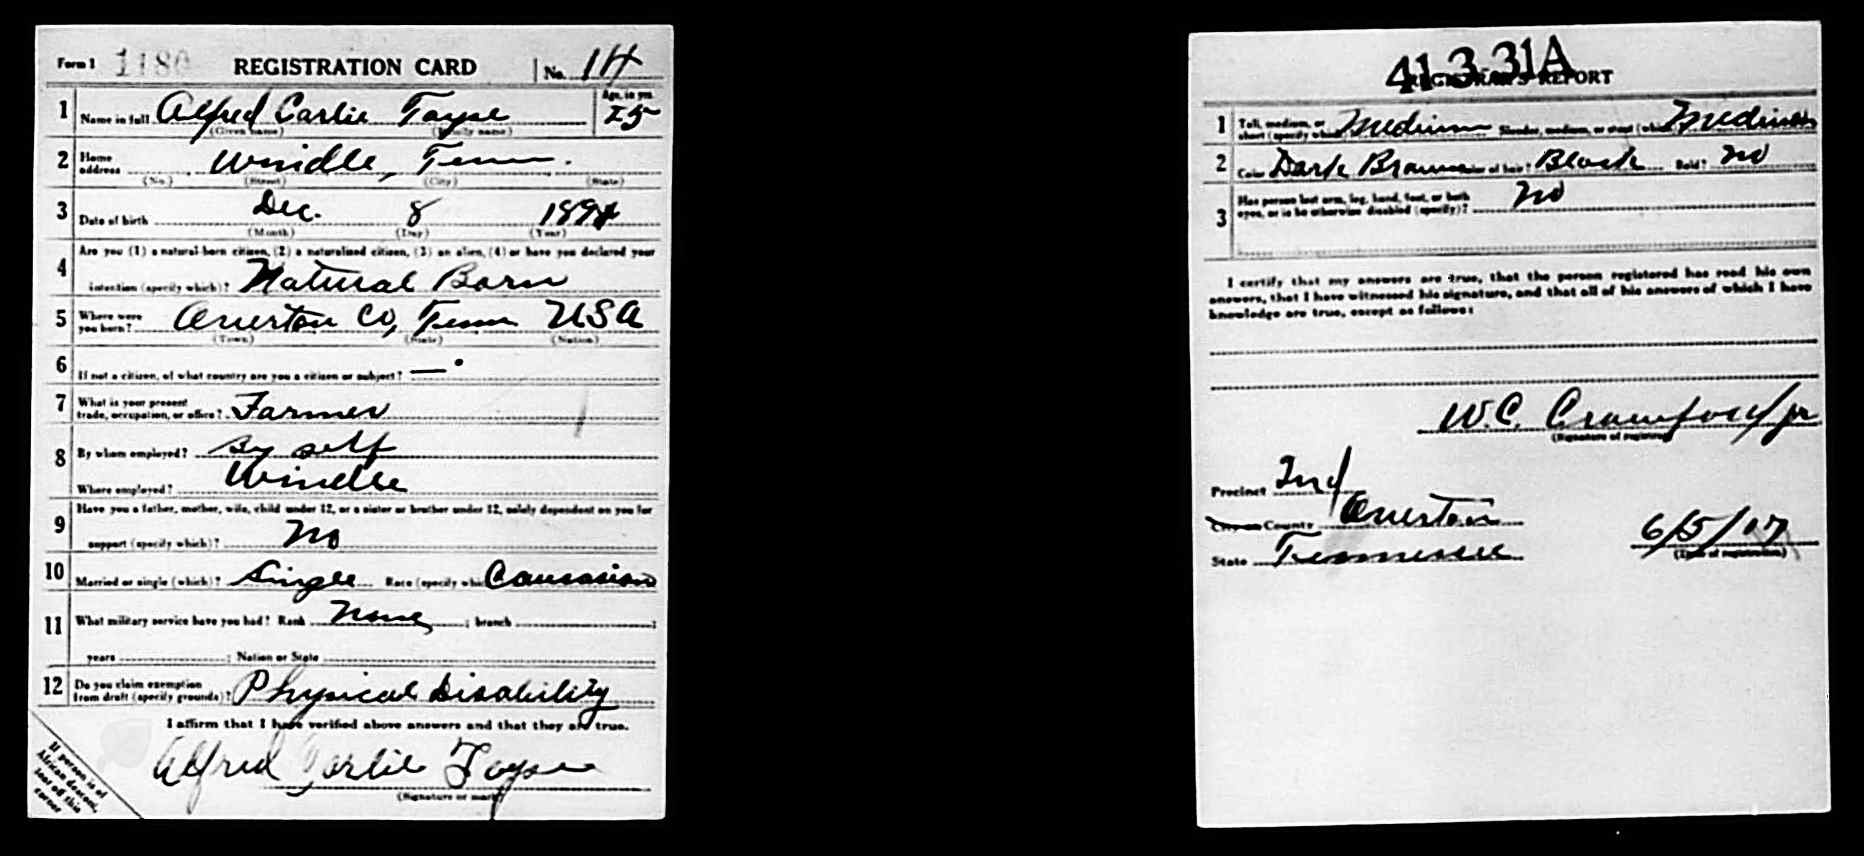 Form 1 1180 REGISTRATION CARD No. 14
1 Name in full Alfred Carlie Tayse Age, in yrs. 25
(Given name) (Family name)
2 Home address Windle, Tenn.
(No.) (Street) (City) (State)
3 Date of birth Dec. 8 189
(Month) (Day) (Year)
4 Are you (1) a natural-born citizen, (2) a naturalized citizen, (3) an alien, (4) or have you declared your
intention (specify which)? Natural Born
5 Where were you born? Overton Co, Tenn USA
(Town) (State) (Nation)
6 If not a citizen, of what country are you a citizen or subject? —.
7 What is your present trade, occupation, or office? Farmer
8 By whom employed? By self
Where employed? Windle
9 Have you a father, mother, wife, child under 12, or a sister or brother under 12, solely dependent on you for
support (specify which)? No
10 Married or single (which)? Single Race (specify which Caucasian
11 What military service have you had? Rank None ; branch ;
years ; Nation or State
12 Do you claim exemption from draft (specify grounds)? Physical Disability
I affirm that I have verified above answers and that they are true.
Alfred Carlie Tayse
(Signature or mark)
If person is of
African descent,
tear off this
corner
41-3-31A
REGISTRAR'S REPORT
1 Tall, medium, or short (specify which Medium Slender, medium, or stout (which Medium
2 Color Dark Brown of hair? Black Bald? No
3 Has person lost arm, leg, hand, foot, or both
eyes, or is he otherwise disabled (specify)? No
I certify that my answers are true, that the person registered has read his own
answers, that I have witnessed his signature, and that all of his answers of which I have
knowledge are true, except as follows:
W.C. Crawford Jr
(Signature of registrar)
Precinct 2nd
City or County Overton 6/5/17
State Tennessee (Date of registration)